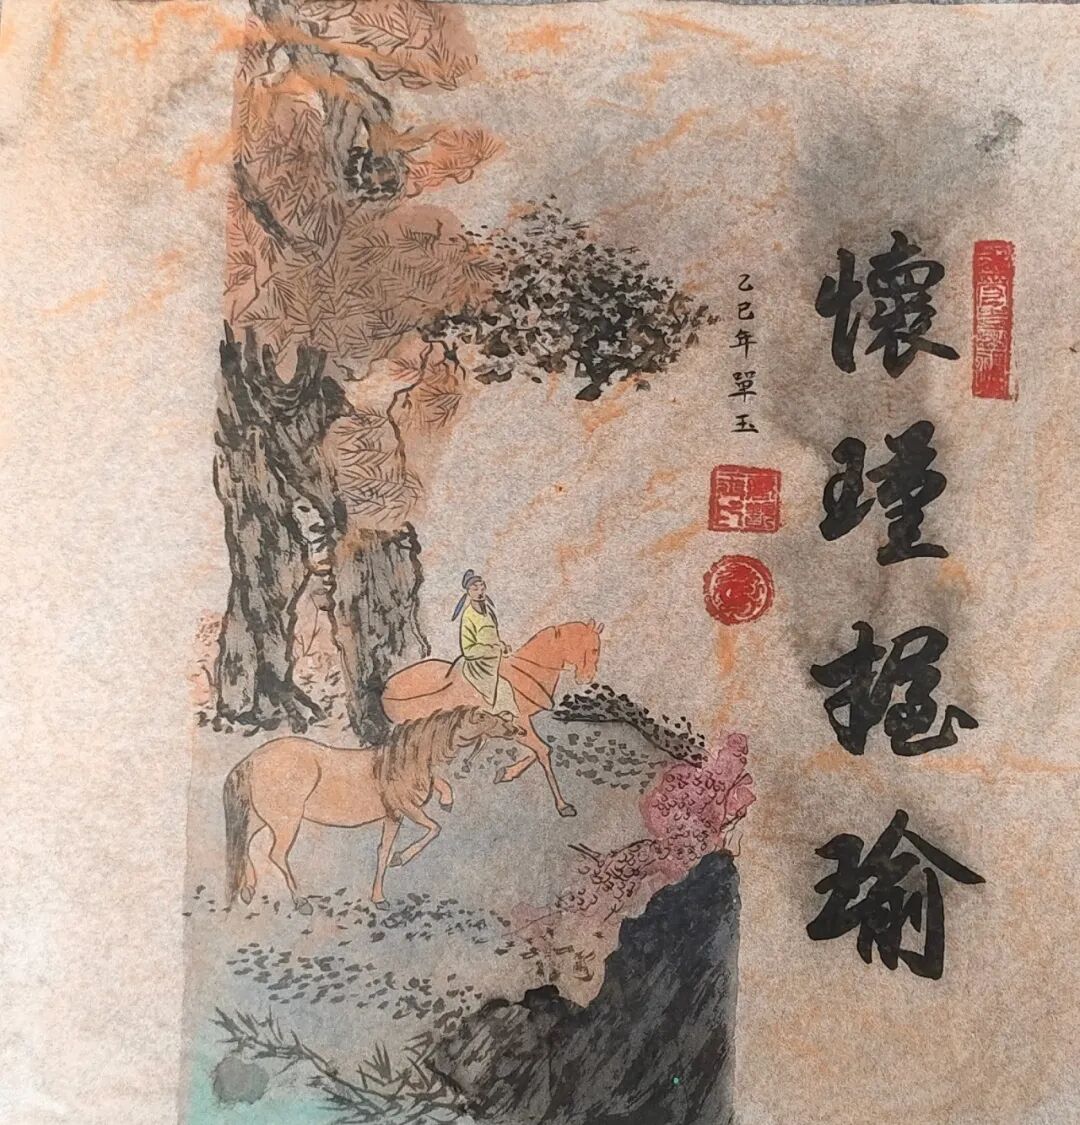 懷瑾握瑜
乙巳年單玉